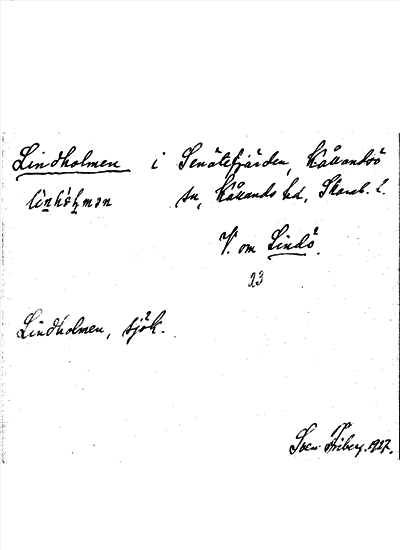 Lindholmen i Senätefjärden, Kållandsö
sn, Kållands hd, Skarab. l.
V. om Lindö.
23
Lindholmen, sjök.
Sven Friberg. 1927.